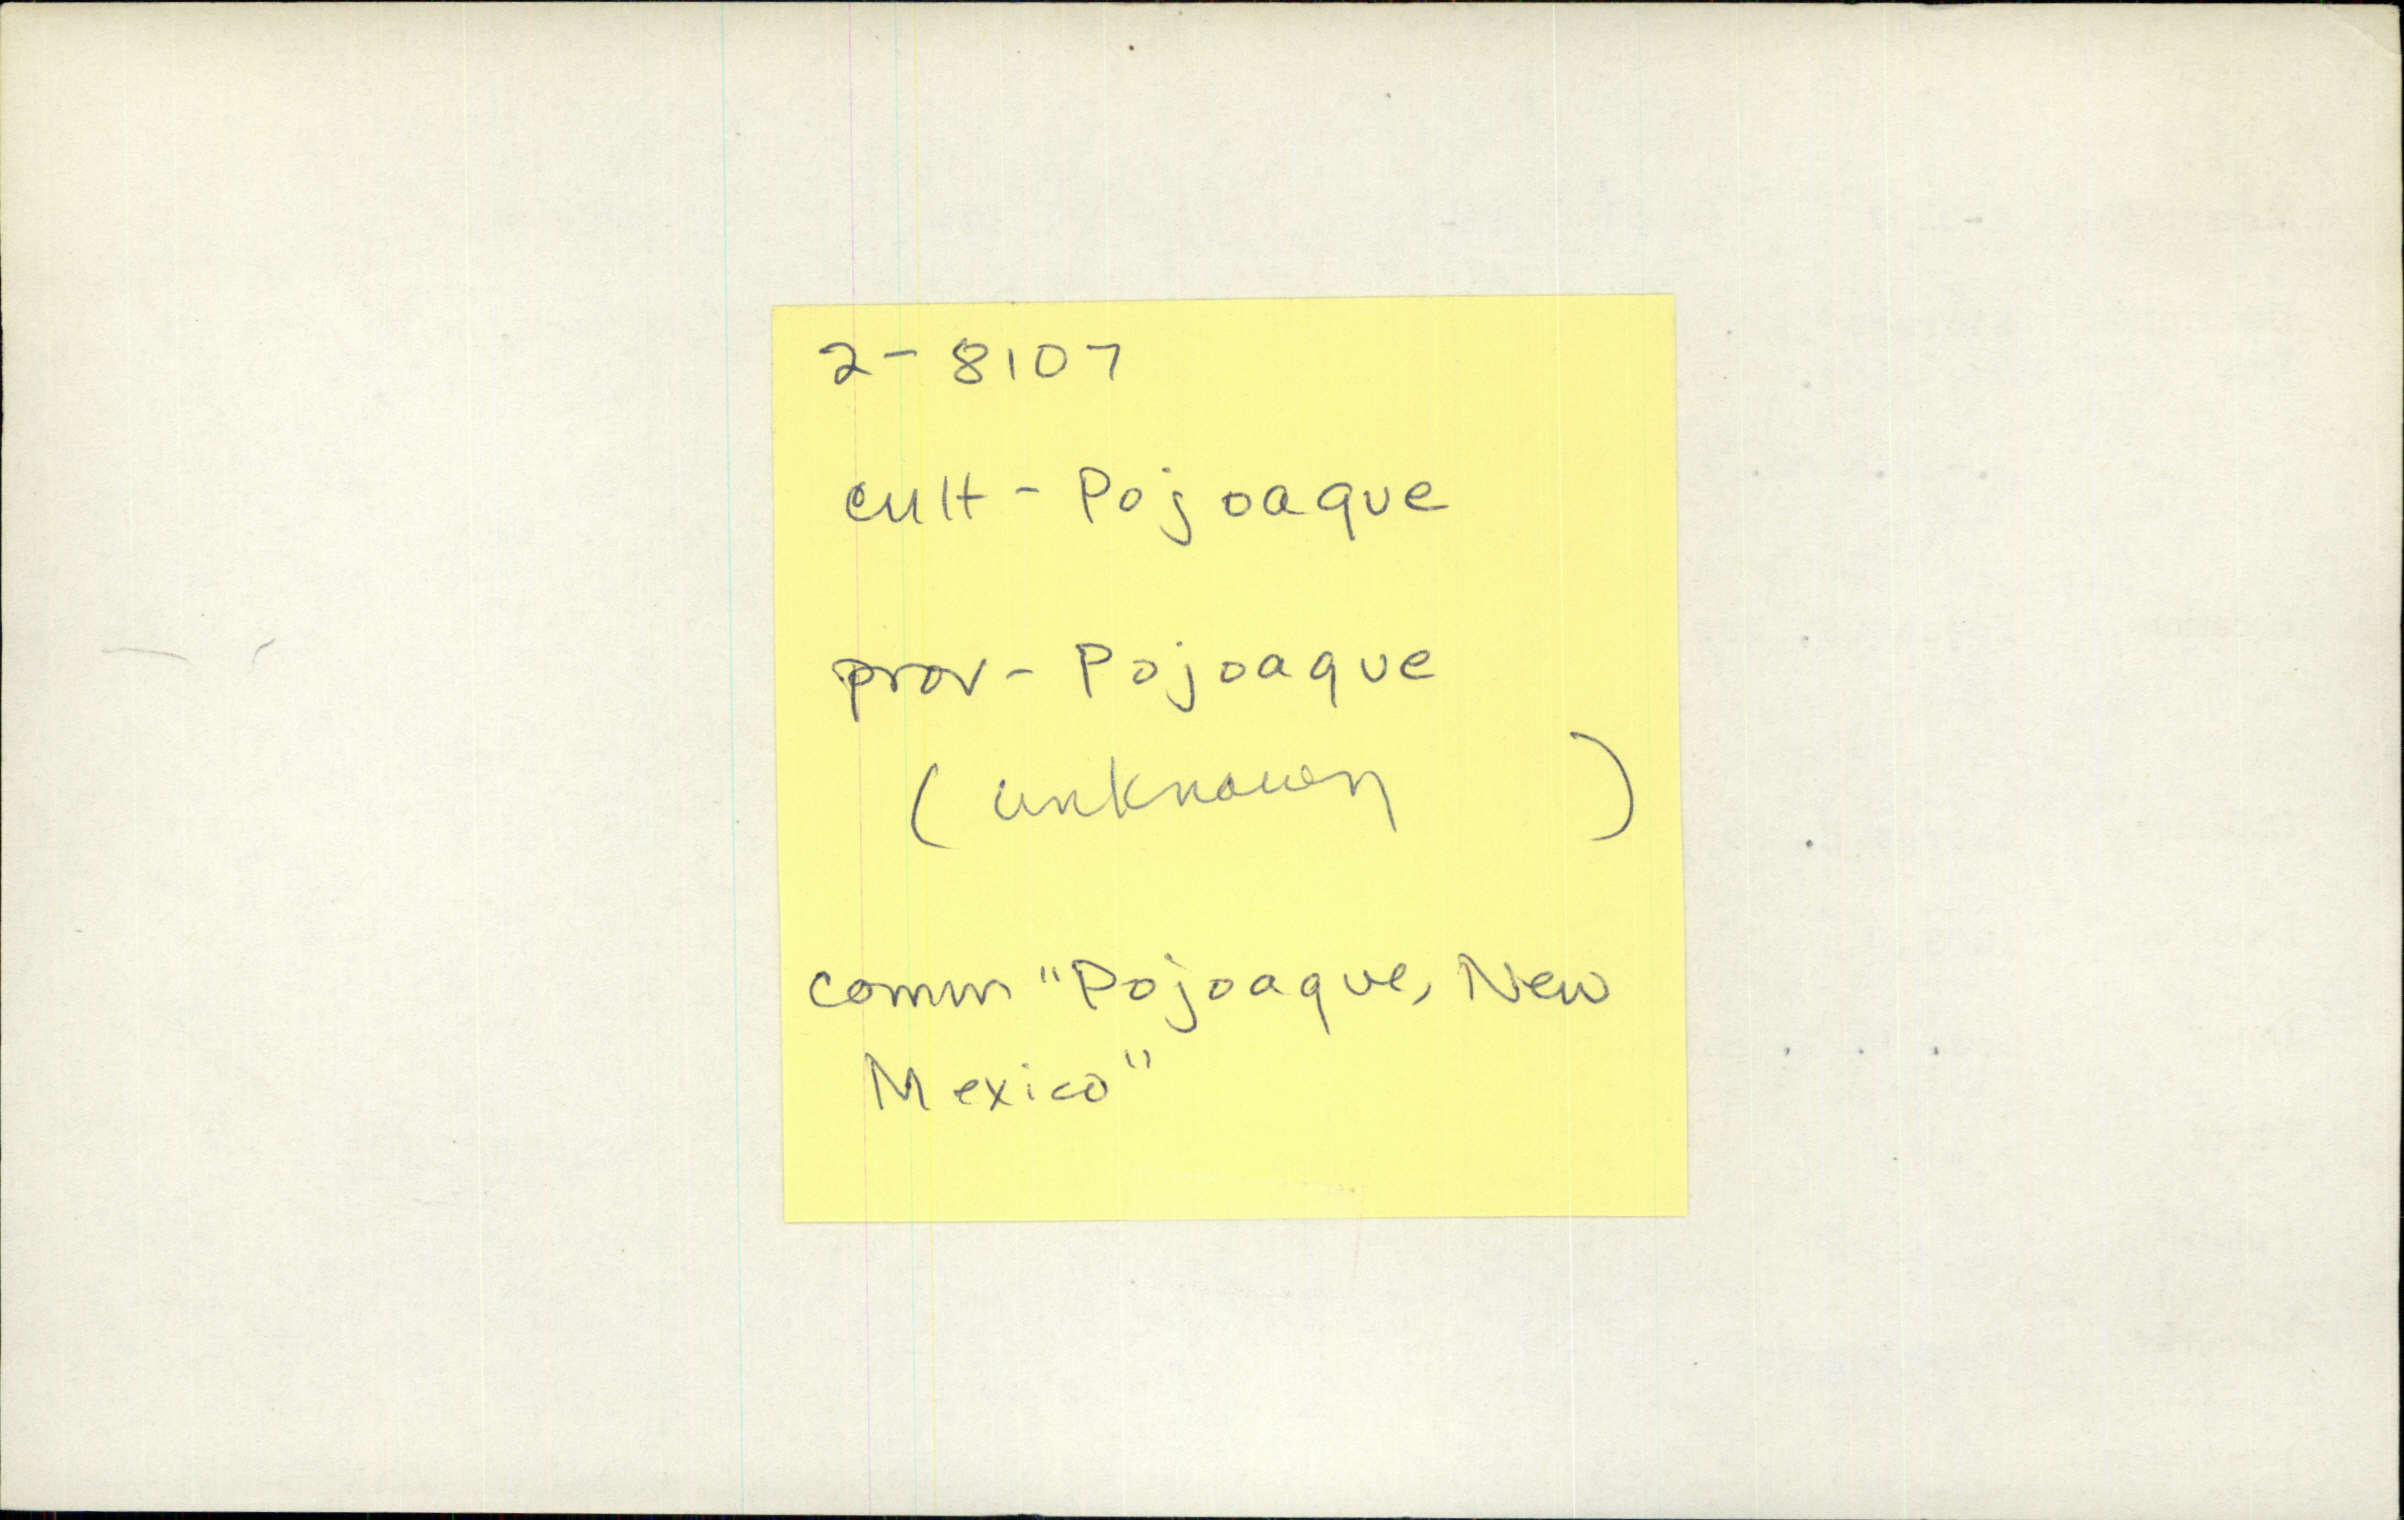 2-8107
cult - Pojoaque
prov - Pojoaque
(unknown )
comm "Pojoaque, New
Mexico"